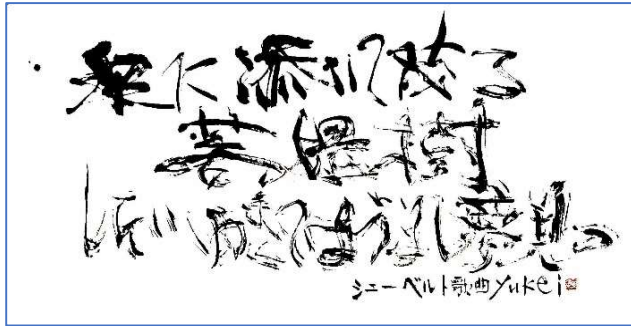 泉に添いて茂る
菩提樹
てはうまし夢見つ
シューベルト歌曲 yukei